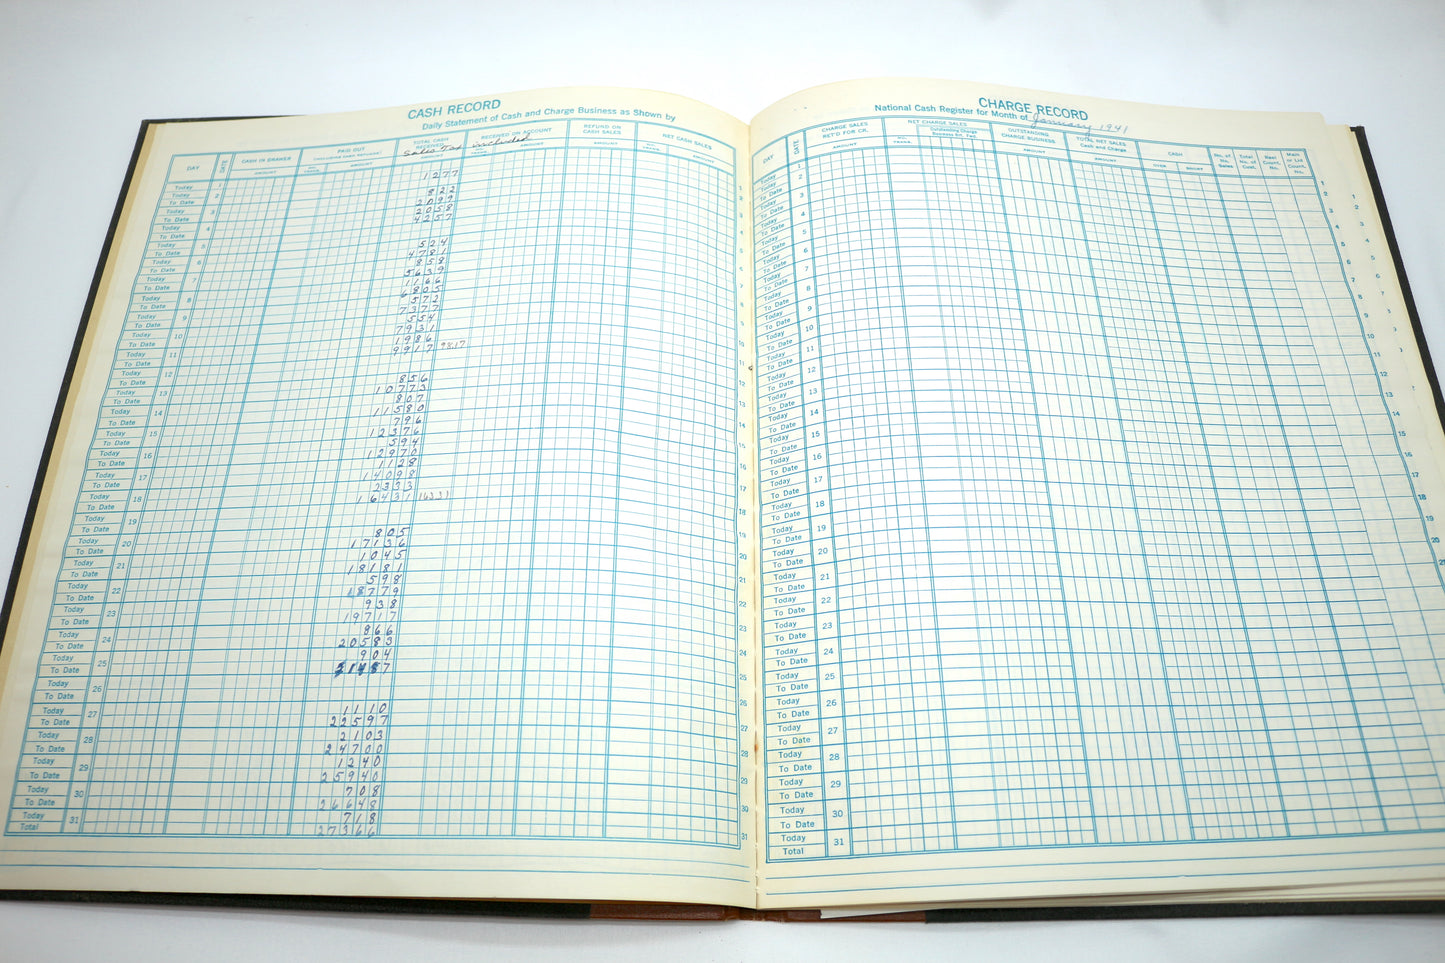 CASH RECORD
Daily Statement of Cash and Charge Business as Shown by
DAY DATE CASH IN DRAWER PAID OUT (INCLUDING CASH REFUNDS) TOTAL CASH RECEIVED RECEIVED ON ACCOUNT REFUND ON CASH SALES NET CASH SALES
Sales Tax included
AMOUNT NO. TRANS. AMOUNT AMOUNT NO. TRANS. AMOUNT AMOUNT NO. TRANS. AMOUNT
Today 1
Today 2 1277
To Date
Today 3 822
To Date 2099
Today 4 2058
To Date 4257
Today 5
To Date
Today 6 524
To Date 4781
Today 7 858
To Date 5639
Today 8 1166
To Date 6805
Today 9 572
To Date 7377
Today 10 554
To Date 7931
Today 11 1986
To Date 9917 9817
Today 12
To Date
Today 13 856
To Date 10773
Today 14 807
To Date 11580
Today 15 796
To Date 12376
Today 16 594
To Date 12970
Today 17 1128
To Date 14098
Today 18 2333
To Date 16431 16331
Today 19
To Date
Today 20 805
To Date 17136
Today 21 1045
To Date 18181
Today 22 598
To Date 18779
Today 23 938
To Date 19717
Today 24 866
To Date 20583
Today 25 904
To Date 21487
Today 26
To Date
Today 27 1110
To Date 22597
Today 28 2103
To Date 24700
Today 29 1240
To Date 25940
Today 30 708
To Date 26648
Today 31 718
Total 27366
CHARGE RECORD
National Cash Register for Month of January 1941
DAY DATE CHARGE SALES RET'D FOR CR. NET CHARGE SALES OUTSTANDING CHARGE BUSINESS TOTAL NET SALES Cash and Charge CASH No. of No Sales Total No. of Cust. Rest Count. No. Main or Lst Count. No.
AMOUNT NO. TRANS. AMOUNT AMOUNT AMOUNT OVER SHORT
Today 1
Today 2
To Date
Today 3
To Date
Today 4
To Date
Today 5
To Date
Today 6
To Date
Today 7
To Date
Today 8
To Date
Today 9
To Date
Today 10
To Date
Today 11
To Date
Today 12
To Date
Today 13
To Date
Today 14
To Date
Today 15
To Date
Today 16
To Date
Today 17
To Date
Today 18
To Date
Today 19
To Date
Today 20
To Date
Today 21
To Date
Today 22
To Date
Today 23
To Date
Today 24
To Date
Today 25
To Date
Today 26
To Date
Today 27
To Date
Today 28
To Date
Today 29
To Date
Today 30
To Date
Today 31
Total